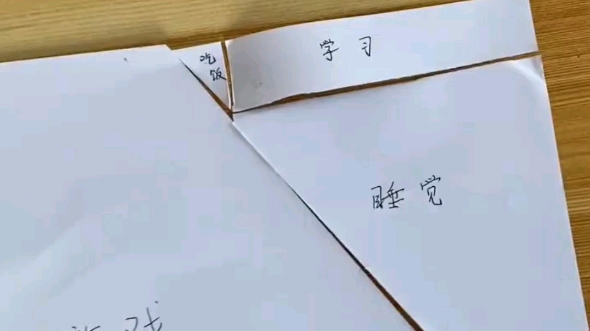 吃饭
学习
睡觉